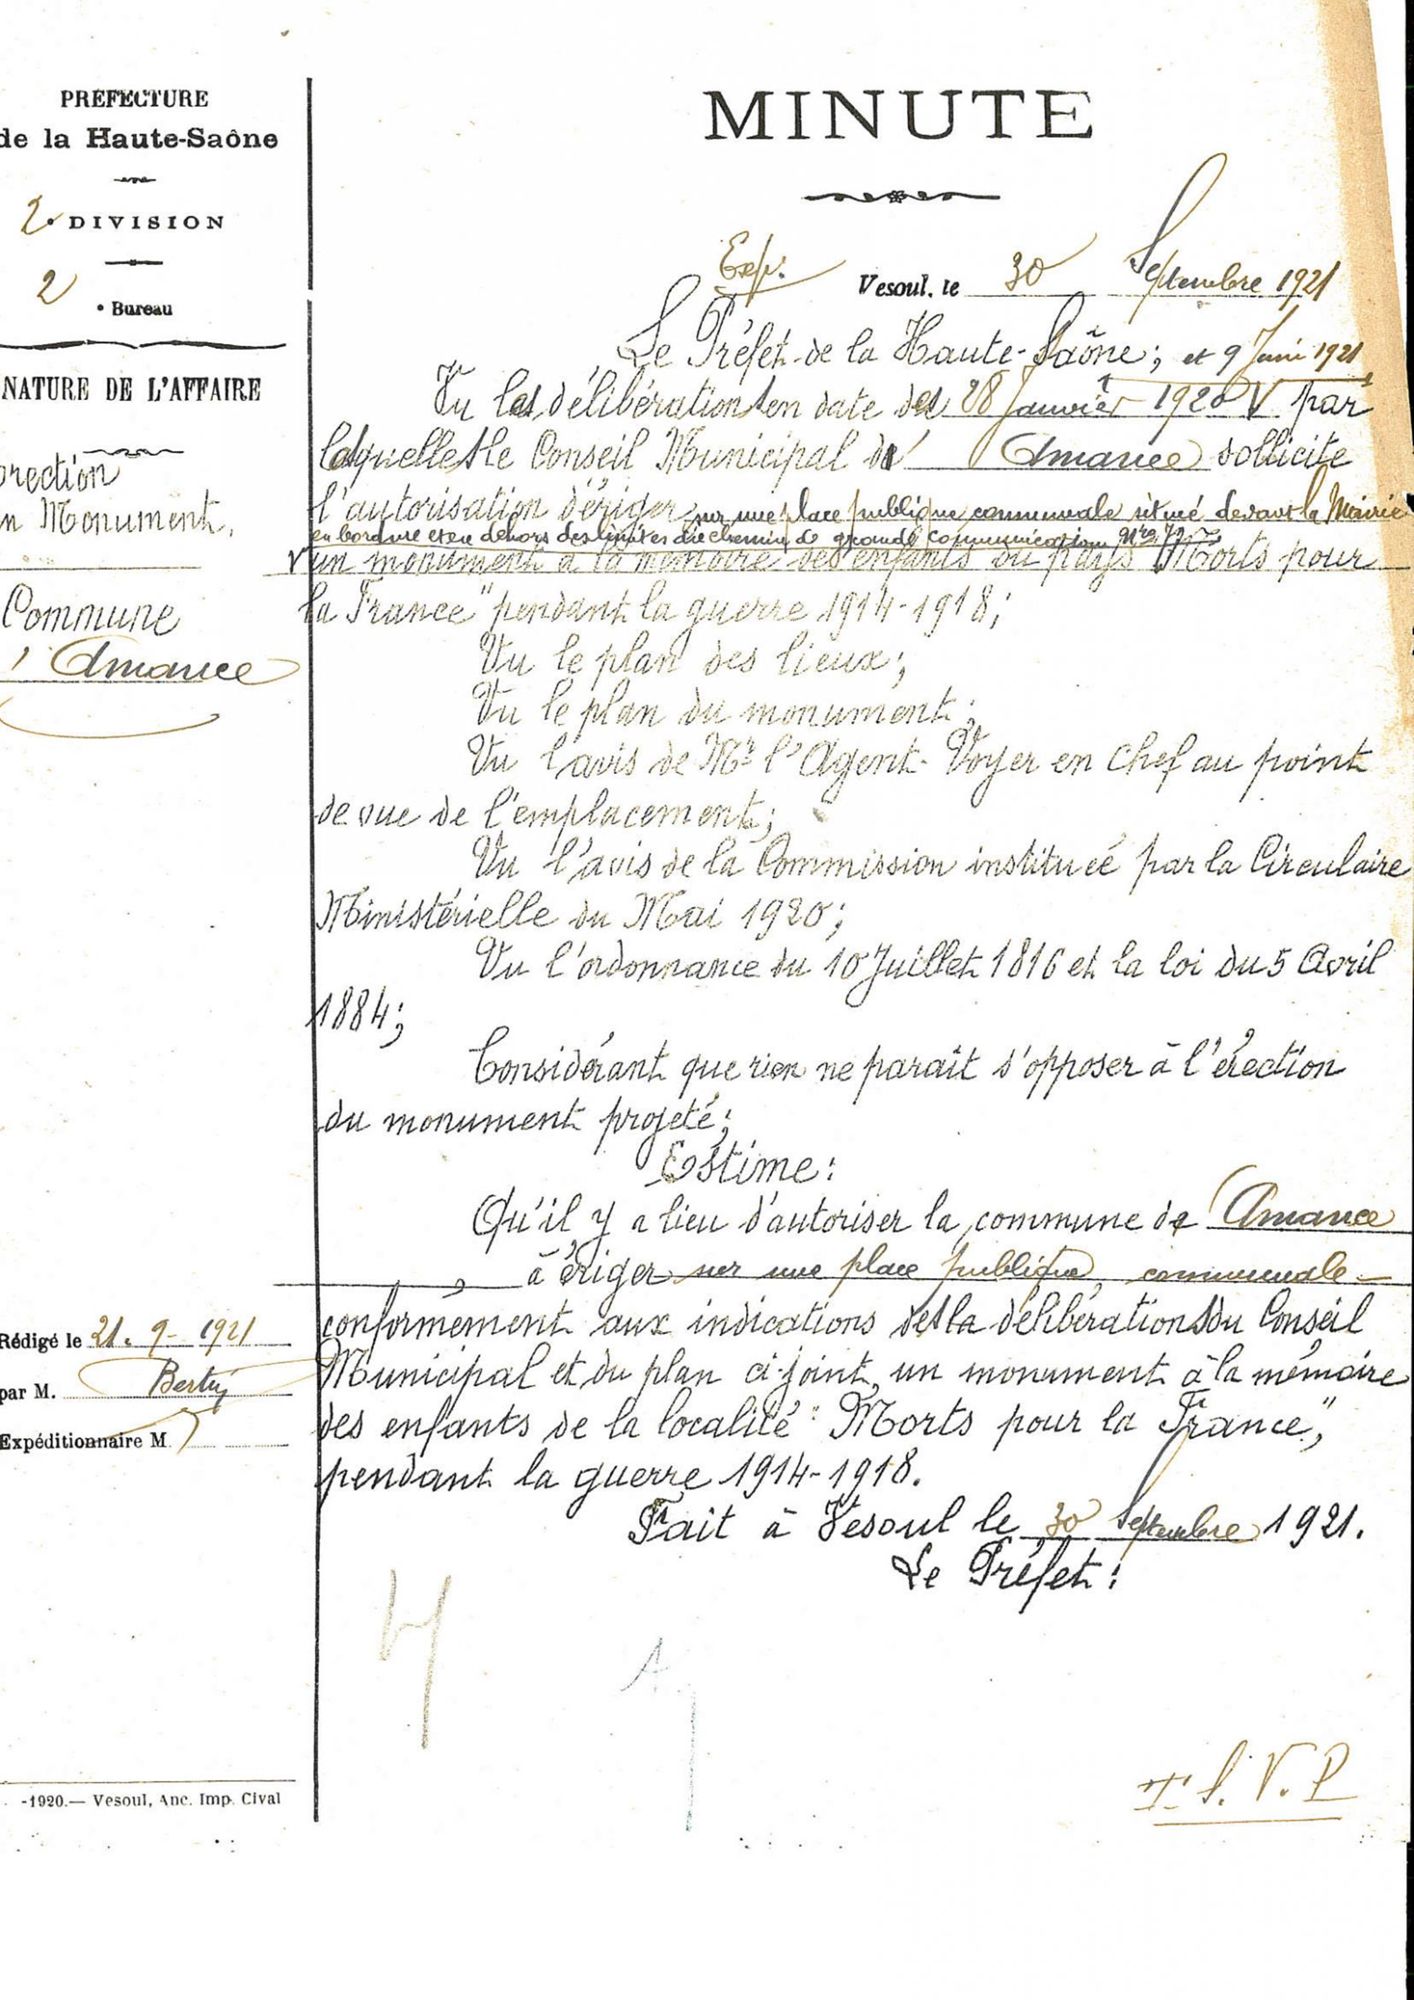 PRÉFECTURE
de la Haute-Saône
2e DIVISION
2
e Bureau
NATURE DE L'AFFAIRE
rection
n Monument,
Commune
d'Amance
Rédigé le 21. 9- 1921
par M.
Expéditionnaire M
-1920.— Vesoul, Anc. Imp. Cival
MINUTE
Exp.
Vesoul, le 30 Septembre 1921
Le Préfet de la Haute-Saône; et 9 Juin 1921
Vu les délibérations en date des 28 Janvier 1920 V par
lesquelles le Conseil Municipal d' Amance sollicite
l'autorisation d'ériger sur une place publique communale situé devant la Mairie
en bordure et en dehors des limites du chemin de grande communication
un monument à la mémoire des enfants du pays "Morts pour
la France" pendant la guerre 1914-1918;
Vu le plan des lieux;
Vu le plan du monument;
Vu l'avis de Mr l'Agent-Voyer en chef au point
de vue de l'emplacement;
Vu l'avis de la Commission instituée par la Circulaire
Ministérielle du Mai 1920;
Vu l'ordonnance du 10 Juillet 1816 et la loi du 5 Avril
1884;
Considérant que rien ne parait s'opposer à l'érection
du monument projeté;
Estime:
Qu'il y a lieu d'autoriser la commune d' Amance
, à ériger sur une place publique communale
conformément aux indications des délibérations du Conseil
Municipal et du plan ci-joint, un monument à la mémoire
des enfants de la localité "Morts pour la France",
pendant la guerre 1914-1918.
Fait à Vesoul le 30 Septembre 1921.
Le Préfet:
T. S. V. P